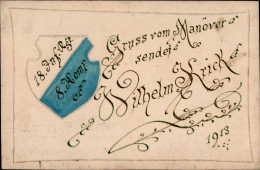 18. Inf. Rgt.
8. Komp.
Gruss vom Manöver
sendet
Wilhelm Krick
1913